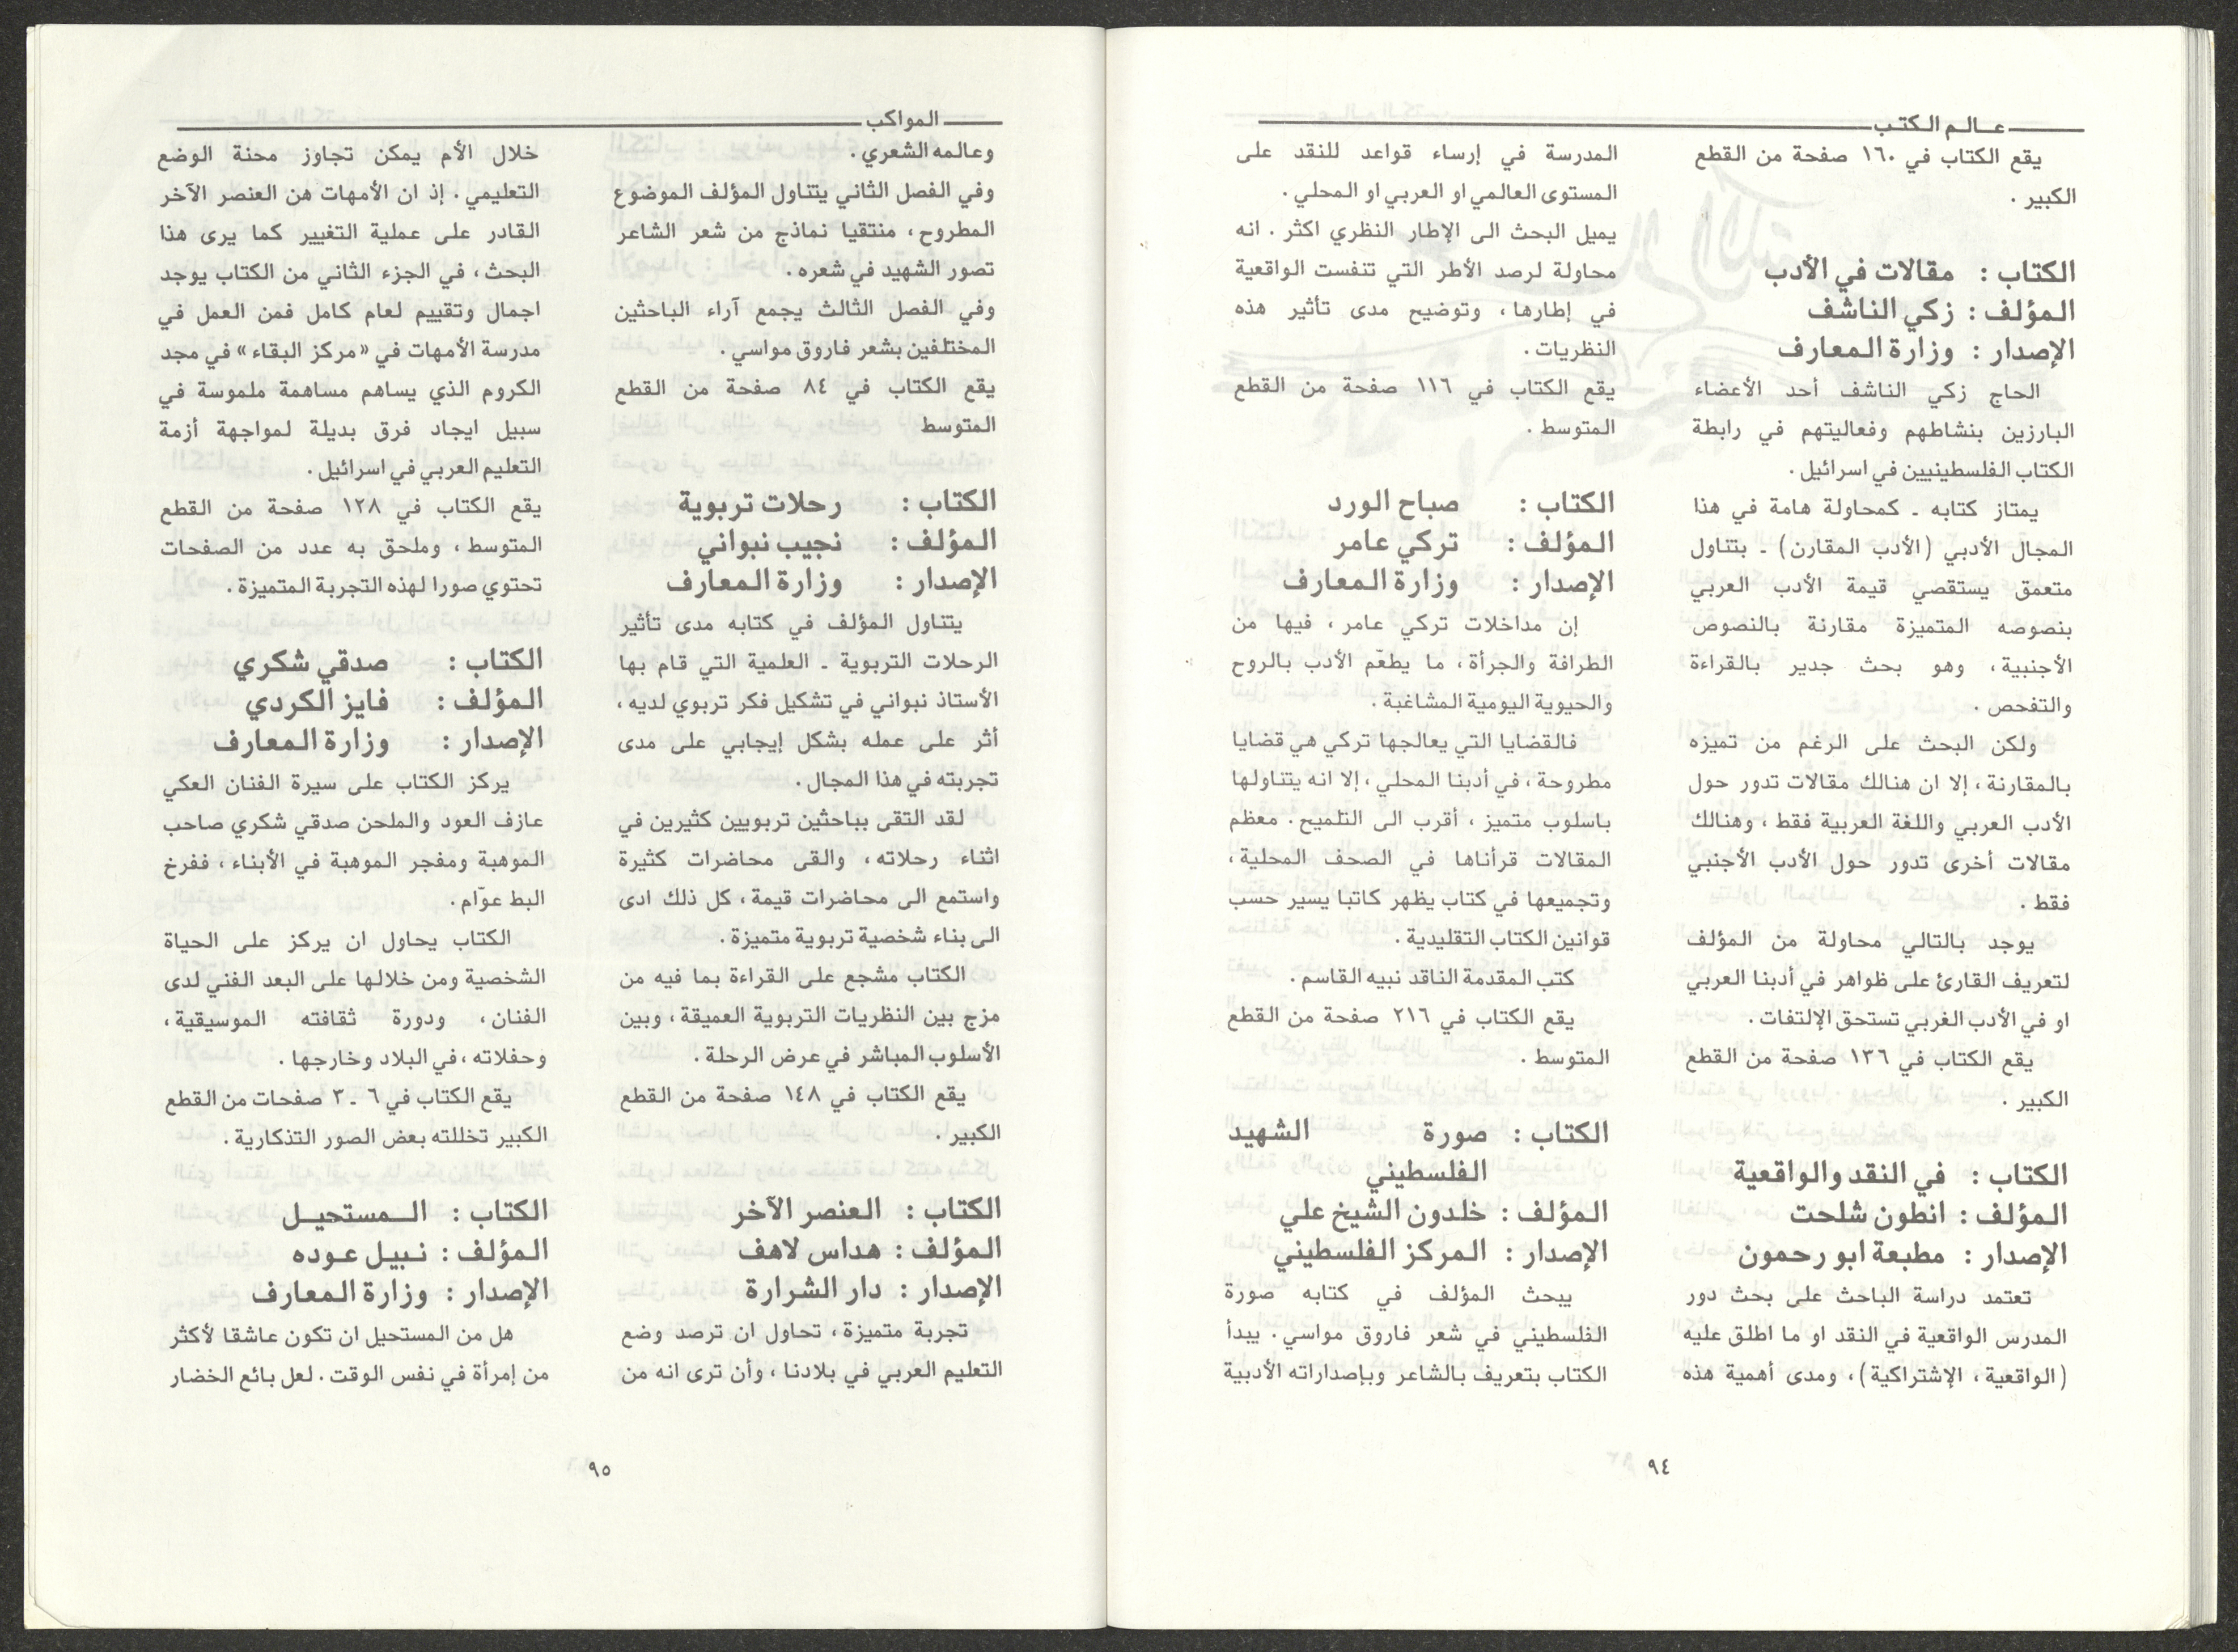 عـالـم الـكتـب
يقع الكتاب في ١٦٠ صفحة من القطع
الكبير .
الكتاب : مقالات في الأدب
المؤلف : زكي الناشف
الإصدار : وزارة المعارف
الحاج زكي الناشف أحد الأعضاء
البارزين بنشاطهم وفعاليتهم في رابطة
الكتاب الفلسطينيين في اسرائيل .
يمتاز كتابه ـ كمحاولة هامة في هذا
المجال الأدبي (الأدب المقارن) ـ بتناول
متعمق يستقصي قيمة الأدب العربي
بنصوصه المتميزة مقارنة بالنصوص
الأجنبية ، وهو بحث جدير بالقراءة
والتفحص .
ولكن البحث على الرغم من تميزه
بالمقارنة ، إلا ان هنالك مقالات تدور حول
الأدب العربي واللغة العربية فقط ، وهنالك
مقالات أخرى تدور حول الأدب الأجنبي
فقط .
يوجد بالتالي محاولة من المؤلف
لتعريف القارئ على ظواهر في أدبنا العربي
او في الأدب الغربي تستحق الإلتفات .
يقع الكتاب في ١٣٦ صفحة من القطع
الكبير .
الكتاب : في النقد والواقعية
المؤلف : انطون شلحت
الإصدار : مطبعة ابو رحمون
تعتمد دراسة الباحث على بحث دور
المدرس الواقعية في النقد او ما اطلق عليه
(الواقعية ، الإشتراكية) ، ومدى أهمية هذه
المدرسة في إرساء قواعد للنقد على
المستوى العالمي او العربي او المحلي .
يميل البحث الى الإطار النظري اكثر . انه
محاولة لرصد الأطر التي تنفست الواقعية
في إطارها ، وتوضيح مدى تأثير هذه
النظريات .
يقع الكتاب في ١١٦ صفحة من القطع
المتوسط .
الكتاب : صباح الورد
المؤلف : تركي عامر
الإصدار : وزارة المعارف
إن مداخلات تركي عامر ، فيها من
الطرافة والجرأة ، ما يطعّم الأدب بالروح
والحيوية اليومية المشاغبة .
فالقضايا التي يعالجها تركي هي قضايا
مطروحة ، في أدبنا المحلي ، إلا انه يتناولها
باسلوب متميز ، أقرب الى التلميح . معظم
المقالات قرأناها في الصحف المحلية ،
وتجميعها في كتاب يظهر كاتبا يسير حسب
قوانين الكتاب التقليدية .
كتب المقدمة الناقد نبيه القاسم .
يقع الكتاب في ٢١٦ صفحة من القطع
المتوسط .
الكتاب : صورة الشهيد
الفلسطيني
المؤلف : خلدون الشيخ علي
الإصدار : المركز الفلسطيني
يبحث المؤلف في كتابه صورة
الفلسطيني في شعر فاروق مواسي . يبدأ
الكتاب بتعريف بالشاعر وبإصداراته الأدبية
٩٤
المواكب
وعالمه الشعري .
وفي الفصل الثاني يتناول المؤلف الموضوع
المطروح ، منتقيا نماذج من شعر الشاعر
تصور الشهيد في شعره .
وفي الفصل الثالث يجمع آراء الباحثين
المختلفين بشعر فاروق مواسي .
يقع الكتاب في ٨٤ صفحة من القطع
المتوسط
الكتاب : رحلات تربوية
المؤلف : نجيب نبواني
الإصدار : وزارة المعارف
يتناول المؤلف في كتابه مدى تأثير
الرحلات التربوية ـ العلمية التي قام بها
الأستاذ نبواني في تشكيل فكر تربوي لديه ،
أثر على عمله بشكل إيجابي على مدى
تجربته في هذا المجال .
لقد التقى بباحثين تربويين كثيرين في
اثناء رحلاته ، والقى محاضرات كثيرة
واستمع الى محاضرات قيمة ، كل ذلك ادى
الى بناء شخصية تربوية متميزة .
الكتاب مشجع على القراءة بما فيه من
مزج بين النظريات التربوية العميقة ، وبين
الأسلوب المباشر في عرض الرحلة .
يقع الكتاب في ١٤٨ صفحة من القطع
الكبير .
الكتاب : العنصر الآخر
المؤلف : هداس لاهف
الإصدار : دار الشرارة
تجربة متميزة ، تحاول ان ترصد وضع
التعليم العربي في بلادنا ، وأن ترى انه من
خلال الأم يمكن تجاوز محنة الوضع
التعليمي . إذ ان الأمهات هن العنصر الآخر
القادر على عملية التغيير كما يرى هذا
البحث ، في الجزء الثاني من الكتاب يوجد
اجمال وتقييم لعام كامل فمن العمل في
مدرسة الأمهات في «مركز البقاء» في مجد
الكروم الذي يساهم مساهمة ملموسة في
سبيل ايجاد فرق بديلة لمواجهة أزمة
التعليم العربي في اسرائيل .
يقع الكتاب في ١٢٨ صفحة من القطع
المتوسط ، وملحق به عدد من الصفحات
تحتوي صورا لهذه التجربة المتميزة .
الكتاب : صدقي شكري
المؤلف : فايز الكردي
الإصدار : وزارة المعارف
يركز الكتاب على سيرة الفنان العكي
عازف العود والملحن صدقي شكري صاحب
الموهبة ومفجر الموهبة في الأبناء ، ففرخ
البط عوّام .
الكتاب يحاول ان يركز على الحياة
الشخصية ومن خلالها على البعد الفني لدى
الفنان ، ودورة ثقافته الموسيقية ،
وحفلاته ، في البلاد وخارجها .
يقع الكتاب في ٦ ـ ٣ صفحات من القطع
الكبير تخللته بعض الصور التذكارية .
الكتاب : الـمستحيـل
المؤلف : نـبيل عـوده
الإصدار : وزارة المعارف
هل من المستحيل ان تكون عاشقا لأكثر
من إمرأة في نفس الوقت . لعل بائع الخضار
٩٥